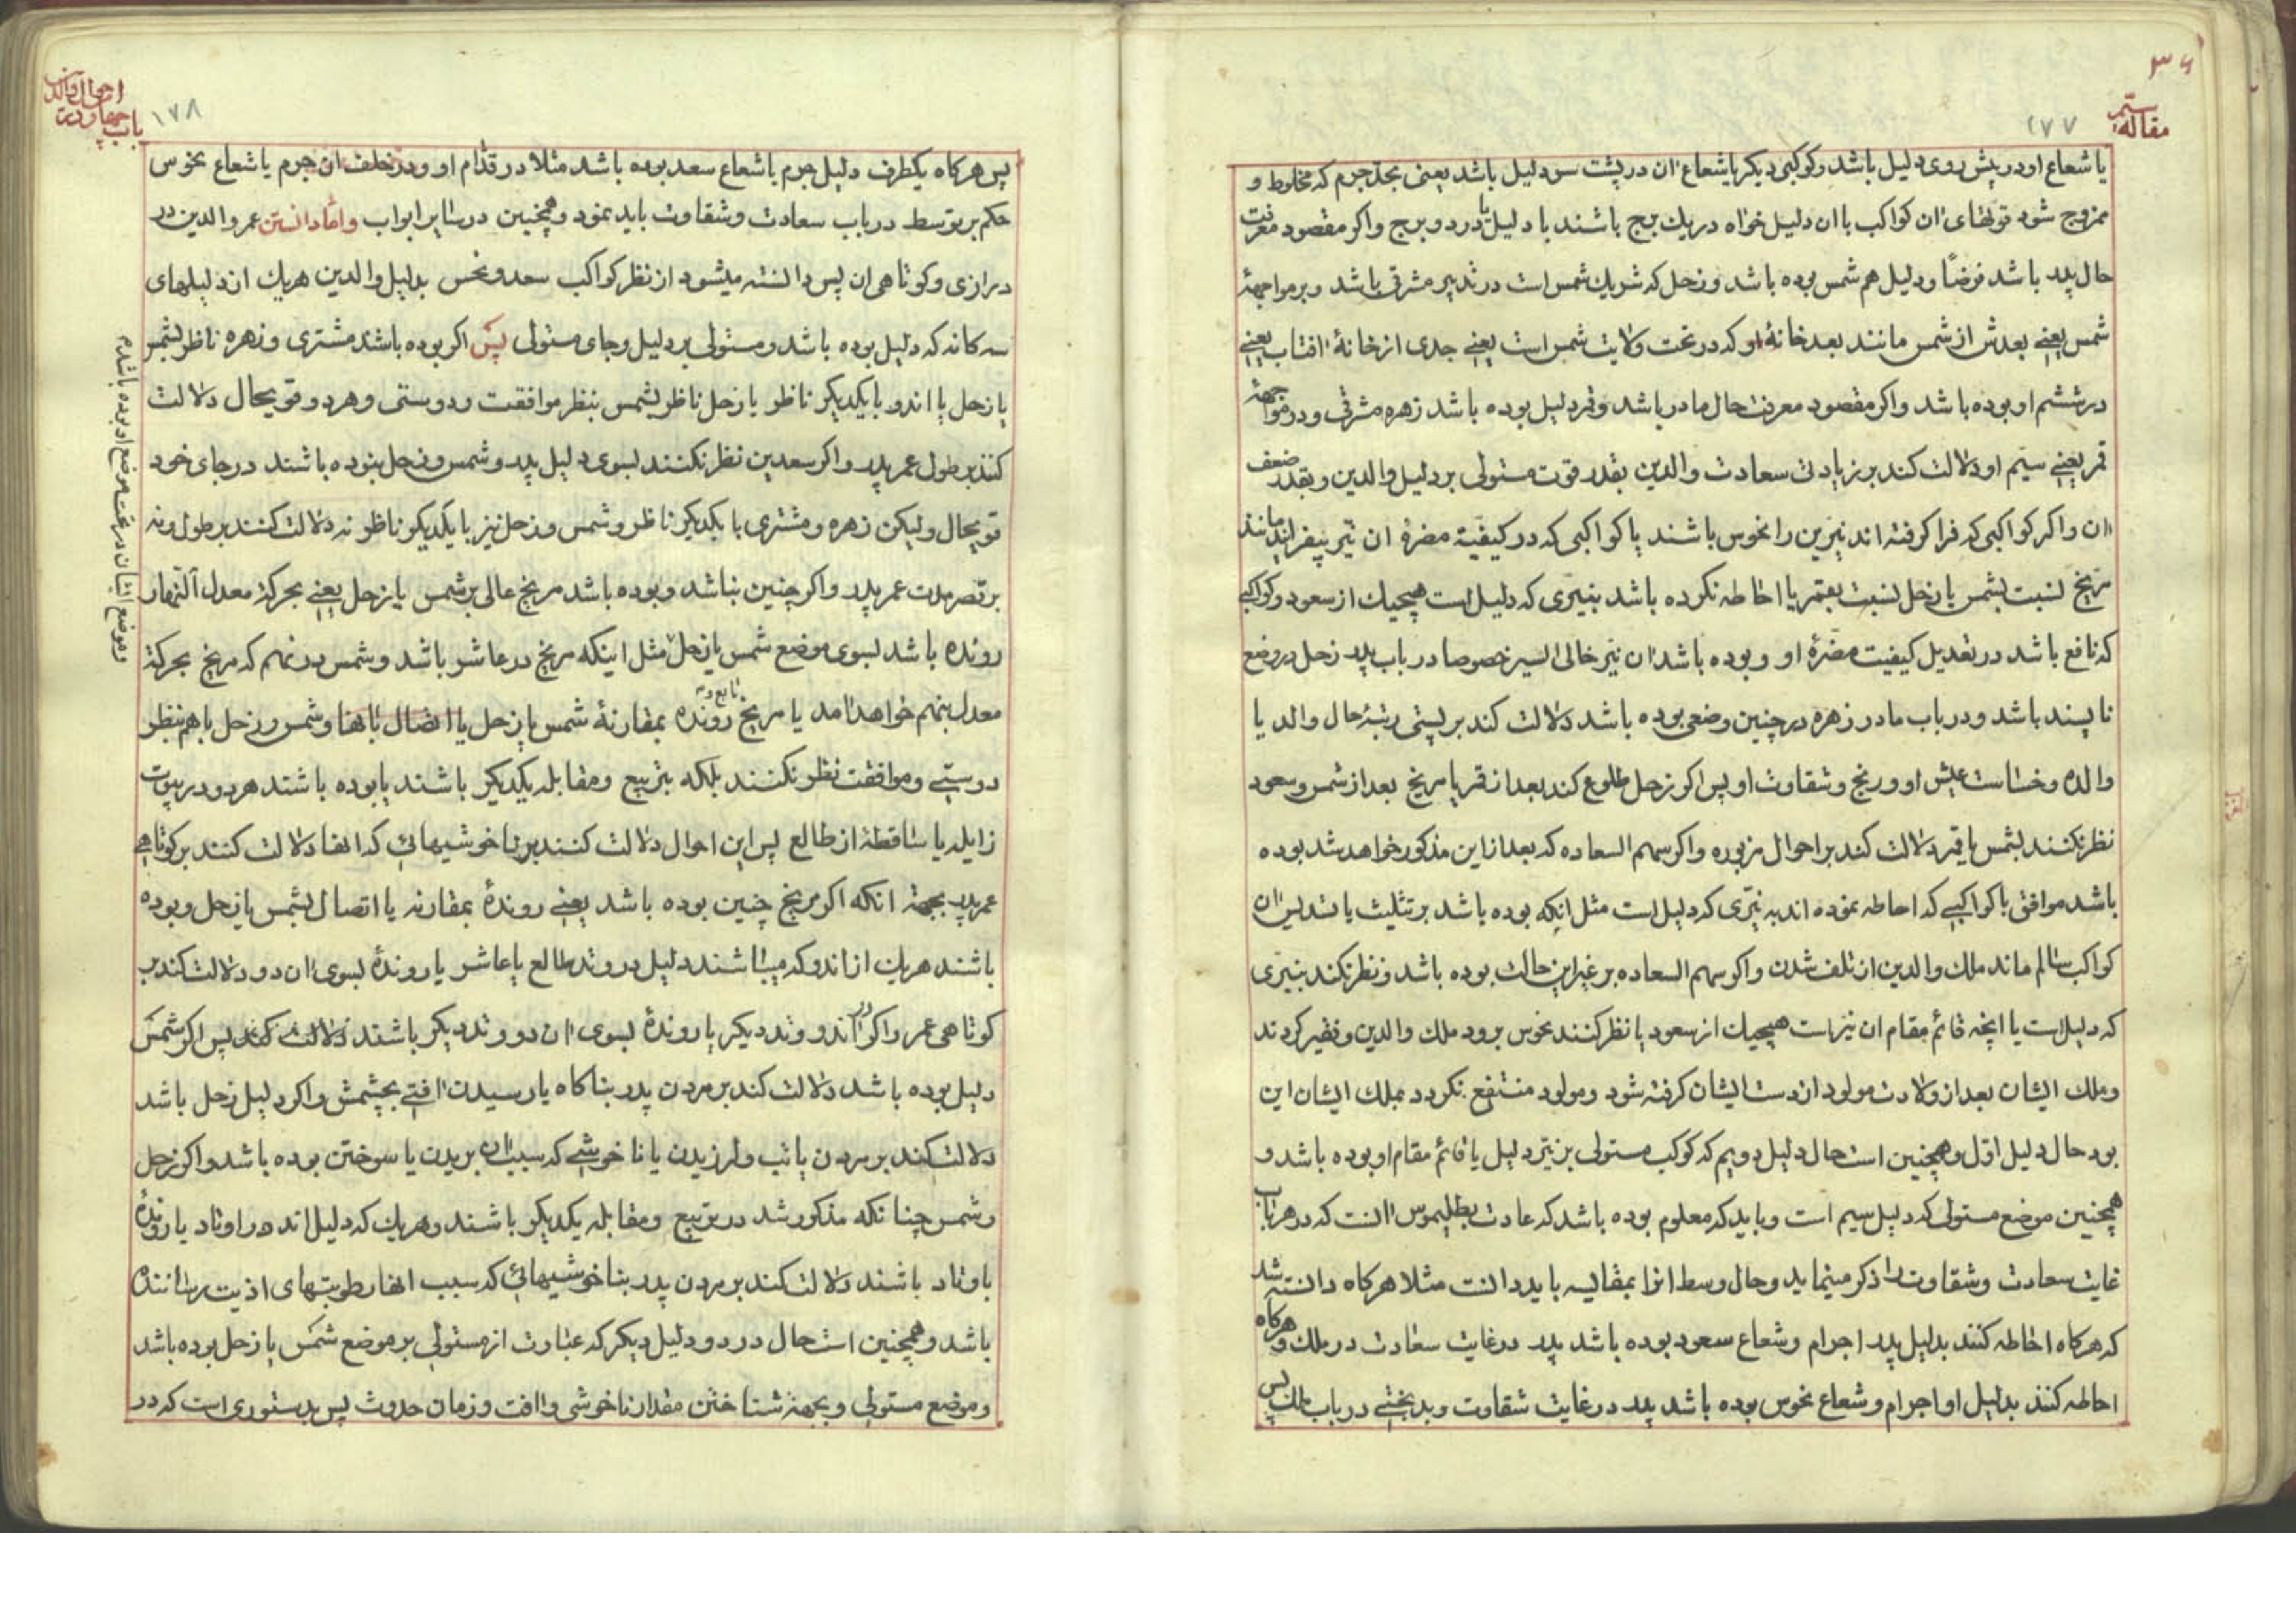 ۳۶
مقالهٔ سیّم
۱۷۷
یا شعاع او در پیش روی دلیل باشد و کوکبی دیکر یا شعاع ان در پشت سر دلیل باشد یعنی بحدّ جرم که مخلوط و
ممزوج شود قوتهای ان کواکب با ان دلیل خواه در یك برج باشند با دلیل یا در دو برج و اکر مقصود معرفت
حال پدر باشد فرضًا و دلیل هم شمس بوده باشد و زحل که شریك شمس است در تدبیر مشرقی باشد و بر مواجههٔ
شمس یعنے بعدش از شمس مانند بعد خانهٔ او که در تحت ولایت شمس است یعنے جدی از خانهٔ افتاب یعنے
در ششم او بوده باشد و اکر مقصود معرفت حال مادر باشد و قمر دلیل بوده باشد زهره مشرقی و در مواجههٔ
قمر یعنے سیّم او دلالت کند بر زیادتی سعادت والدین بقدر قوت مستولی بر دلیل والدین و بقدر ضعف
ان و اکر کواکبی که فرا کرفته اند نیّرین را نحوس باشند یا کواکبی که در کیفیّة مضرّهٔ ان نیّر بیفزایند مانند
مریخ نسبت بشمس یا زحل نسبت بقمر یا احاطه نکرده باشد بنیّری که دلیل است هیچیك از سعود و کواکبی
که نافع باشد در تعدیل کیفیت مضرّهٔ او و بوده باشد ان نیّر خالی السیر خصوصا در باب پدر زحل در وضع
ناپسند باشد و در باب مادر زهره در چنین وضعی بوده باشد دلالت کند بر پستی رتبهٔ حال والد یا
والده و خساست عیش او و رنج و شقاوت او پس اکر زحل طلوع کند بعد از قمر یا مریخ بعد از شمس و سعود
نظر نکنند بشمس یا قمر دلالت کند بر احوال مزبوره و اکر سهم السعاده که بعد از این مذکور خواهد شد بوده
باشد موافق با کواکبے که احاطه نموده اند به نیّری که دلیل است مثل انکه بوده باشد بر تثلیث یا تسدیس ان
کواکب سالم ماند ملك والدین از تلف شدن و اکر سهم السعاده بر غیر این حالت بوده باشد و نظر نکند بنیّری
که دلیل است یا انچه قائم مقام ان نیّر است هیچیك از سعود یا نظر کنند نحوس برود ملك والدین و فقیر کردند
و ملك ایشان بعد از ولادت مولود از دست ایشان کرفته شود و مولود منتفع نکردد بملك ایشان این
بود حال دلیل اوّل و همچنین است حال دلیل دویم که کوکب مستولی بر نیّر دلیل یا قائم مقام او بوده باشد و
همچنین موضع مستولی که دلیل سیم است و باید که معلوم بوده باشد که عادت بطلیموس انست که در هر باب
غایت سعادت و شقاوت را ذکر مینماید و حال وسط انرا بمقایسه باید دانست مثلا هرکاه دانسته شد
که هرکاه احاطه کنند بدلیل پدر اجرام و شعاع سعود بوده باشد پدر در غایت سعادت در ملك و هرکاه
احاطه کنند بدلیل او اجرام و شعاع نحوس بوده باشد پدر در غایت شقاوت و بدبختے در باب ملك پس
باب چهارم در احوال والدین
۱۷۸
پس هرکاه یکطرف دلیل جرم یا شعاع سعد بوده باشد مثلا در قدّام او و در خلف ان جرم یا شعاع نحوس
حکم بر توسط در باب سعادت و شقاوت باید نمود و همچنین در سایر ابواب و امّا دانستن عمر والدین در
درازی و کوتاهی ان پس دانسته میشود از نظر کواکب سعد و نحس بدلیل والدین هر یك از دلیلهای
سه کانه که دلیل بوده باشد و مستولی بر دلیل و جای مستولی پس اکر بوده باشد مشتری و زهره ناظر بشمس
یا زحل یا اندو با یکدیکر ناظر یا زحل ناظر بشمس بنظر موافقت و دوستی و هر دو قویحال دلالت
کنند بر طول عمر پدر و اکر سعدین نظر نکنند بسوی دلیل پدر و شمس و زحل نبوده باشند در جای خود
قویحال ولیکن زهره و مشتری با یکدیکر ناظر و شمس و زحل نیز با یکدیکر ناظر نه دلالت کنند بر طول و نه
بر قصر مدت عمر پدر و اکر چنین نباشد و بوده باشد مریخ عالی بر شمس یا زحل یعنے بحرکة معدل النّهار
رونده باشد بسوی موضع شمس یا زحل مثل اینکه مریخ در عاشر باشد و شمس در نهم که مریخ بحرکة
معدل بنهم خواهد امد یا مریخ رونده بمقارنهٔ شمس یا زحل یا اتصال بانها و شمس و زحل با هم بنظر
دوستے و موافقت نظر نکنند بلکه بتربیع و مقابله یکدیکر باشند یا بوده باشند هر دو در بیوت
زایله یا ساقطهٔ از طالع پس این احوال دلالت کنند بر ناخوشیهائی که انها دلالت کنند بر کوتاهی
عمر پدر بجهة انکه اکر مریخ چنین بوده باشد یعنے روندهٔ بمقارنه یا اتصال بشمس یا زحل و بوده
باشند هر یك از اندو که میباشند دلیل در وتد طالع یا عاشر یا روندهٔ بسوی ان دو دلالت کند بر
کوتاهی عمر و اکر در اندو وتد دیکر یا روندهٔ بسوی ان دو وتد دیکر باشند دلالت کند پس اکر شمس
دلیل بوده باشد دلالت کند بر مردن پدر بناکاه یا رسیدن افتے بچشمش و اکر دلیل زحل باشد
دلالت کند بر مردن یا تب و لرزیدن یا ناخوشے که سبب ان بریدن یا سوختن بوده باشد و اکر زحل
و شمس چنانکه مذکور شد در تربیع و مقابله یکدیکر باشند و هر یك که دلیل اند در اوتاد یا روندهٔ
باوتاد باشند دلالت کند بر مردن پدر بناخوشیهائی که سبب انها رطوبتهای اذیت رساننده
باشد و همچنین است حال در دو دلیل دیکر که عبارت از مستولی بر موضع شمس یا زحل بوده باشد
و موضع مستولی و بجهة شناختن مقدار ناخوشی و افت و زمان حدوث پس بدستوری است که در
و موضع ایشان در تحت موضع او بوده باشد م
تابع ونه